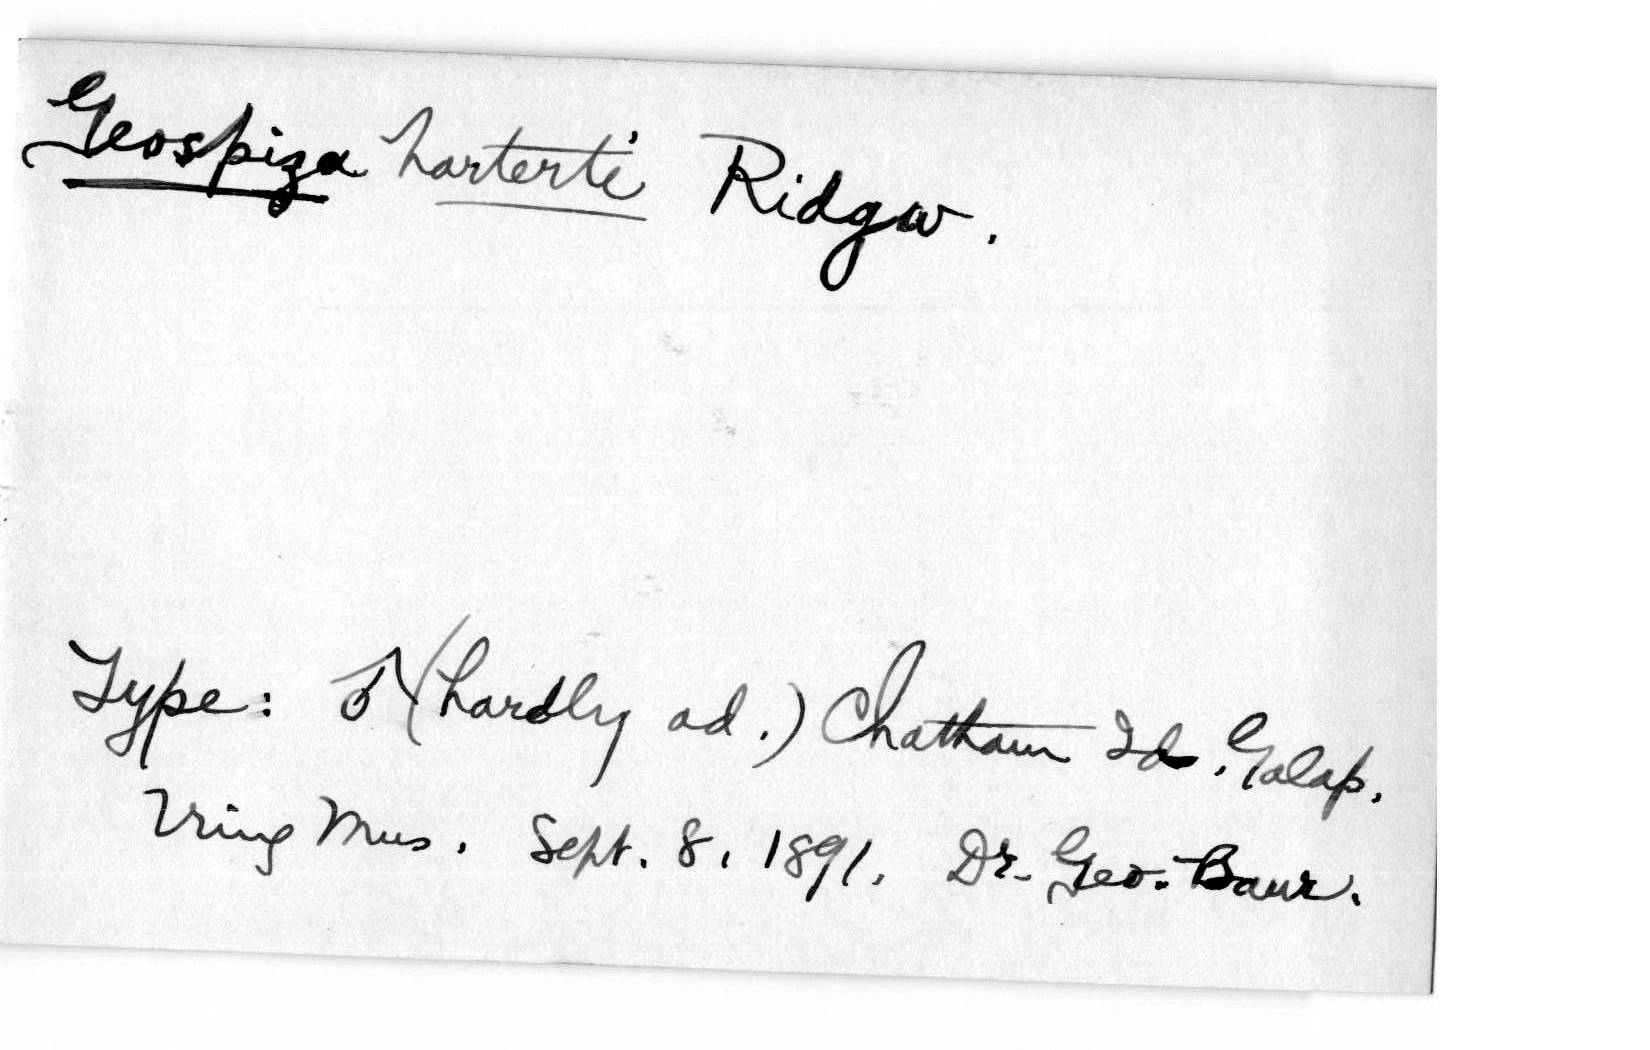 Geospiza harterti Ridgw.
Type: ♂ (hardly ad.) Chatham Id., Galap.
Tring Mus. Sept. 8, 1891. Dr. Geo. Baur.